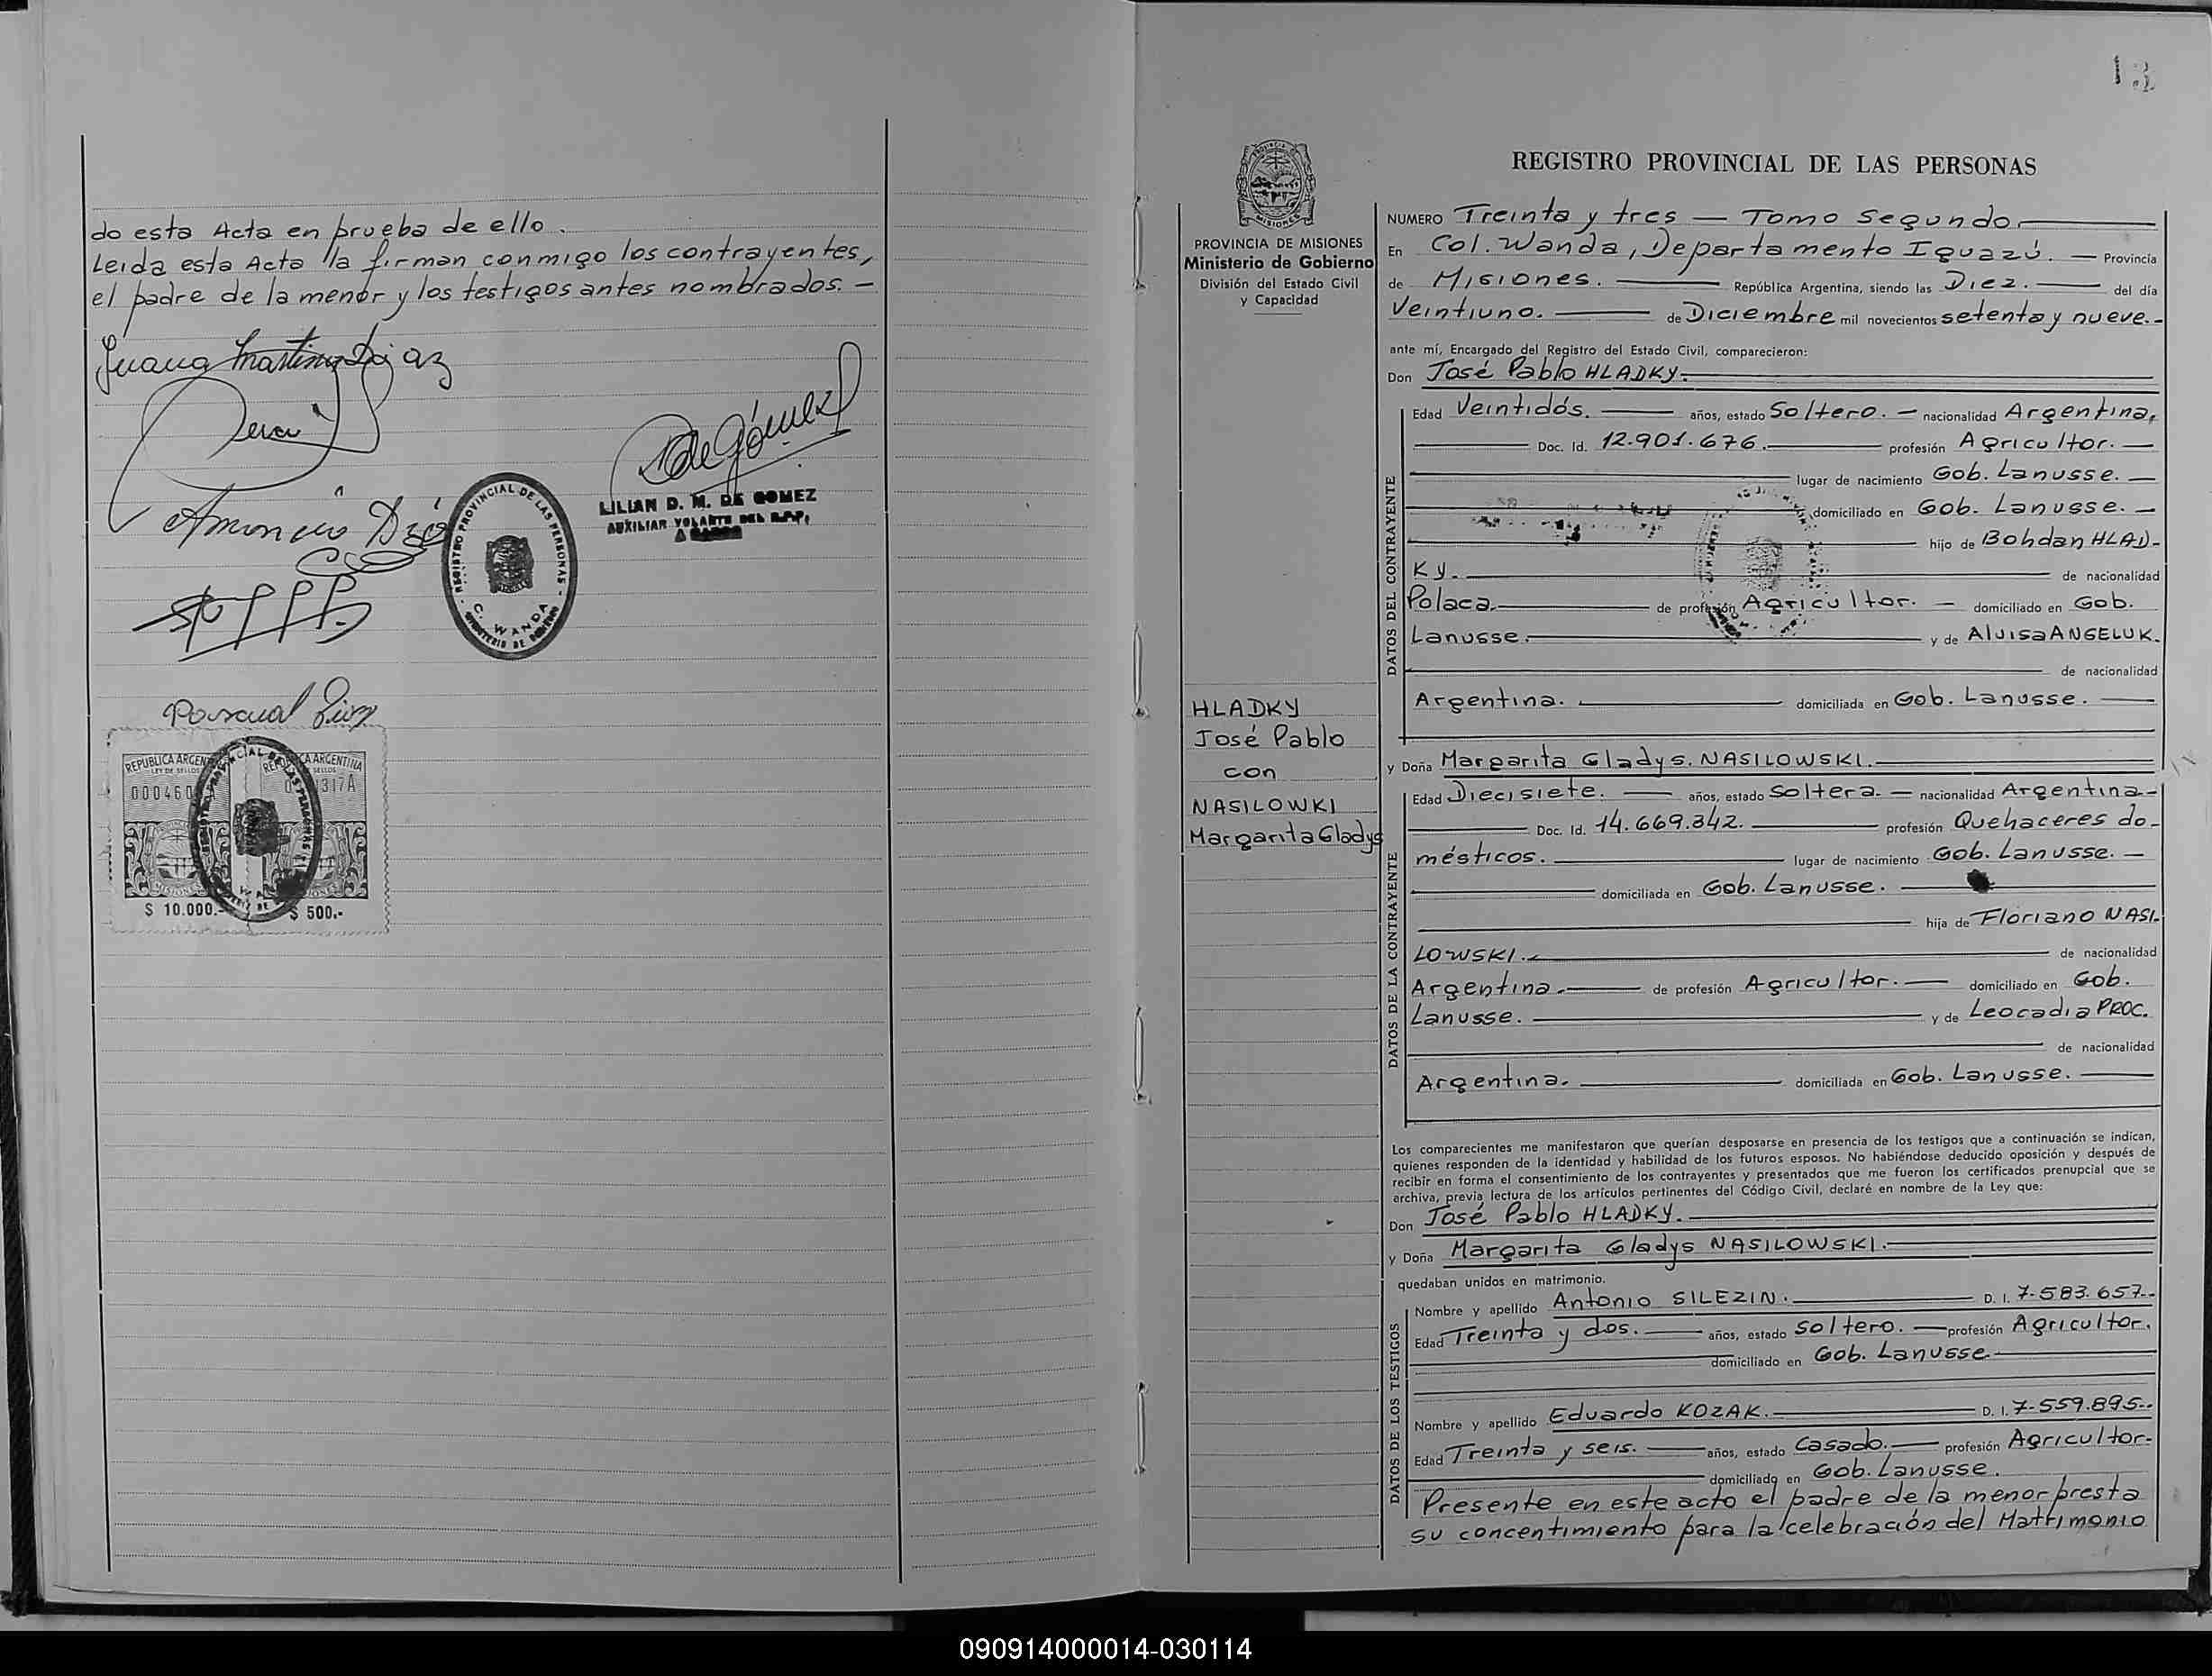 do esta Acta en prueba de ello.
Leida esta Acta la firman conmigo los contrayentes,
el padre de la menor y los testigos antes nombrados. —
Juana Martinez Diaz
de Gómez
LILIAN D. M. DE GOMEZ
AUXILIAR VOLANTE DEL R.P.P.
REGISTRO PROVINCIAL DE LAS PERSONAS
C. WANDA
MINISTERIO DE GOBIERNO
Pascual
REPUBLICA ARGEN
CA ARGENTINA
LEY DE SELLOS
SELLOS
000460
317A
MISIONES
$ 10.000.-
$ 500.-
13
REGISTRO PROVINCIAL DE LAS PERSONAS
PROVINCIA DE MISIONES
Ministerio de Gobierno
División del Estado Civil
y Capacidad
HLADKY
José Pablo
con
NASILOWKI
Margarita Gladys
NUMERO Treinta y tres — Tomo segundo
En Col. Wanda, Departamento Iguazú. — Provincia
de Misiones. — República Argentina, siendo las Diez. — del día
Veintiuno. — de Diciembre mil novecientos setenta y nueve.-
ante mí, Encargado del Registro del Estado Civil, comparecieron:
Don José Pablo HLADKY.
DATOS DEL CONTRAYENTE
Edad Veintidós. — años, estado Soltero. — nacionalidad Argentina,
Doc. Id. 12.901.676. — profesión Agricultor. —
lugar de nacimiento Gob. Lanusse. —
domiciliado en Gob. Lanusse. —
hijo de Bohdan HLAD-
KY. — de nacionalidad
Polaca. — de profesión Agricultor. — domiciliado en Gob.
Lanusse. — y de Aluisa ANGELUK.
de nacionalidad
Argentina. — domiciliada en Gob. Lanusse. —
y Doña Margarita Gladys. NASILOWSKI.
DATOS DE LA CONTRAYENTE
Edad Diecisiete. — años, estado Soltera. — nacionalidad Argentina-
Doc. Id. 14.669.342. — profesión Quehaceres do-
mésticos. — lugar de nacimiento Gob. Lanusse. —
domiciliada en Gob. Lanusse. —
hija de Floriano NASI-
LOWSKI. — de nacionalidad
Argentina. — de profesión Agricultor. — domiciliado en Gob.
Lanusse. — y de Leocadia PROC.
de nacionalidad
Argentina. — domiciliada en Gob. Lanusse. —
Los comparecientes me manifestaron que querían desposarse en presencia de los testigos que a continuación se indican,
quienes responden de la identidad y habilidad de los futuros esposos. No habiéndose deducido oposición y después de
recibir en forma el consentimiento de los contrayentes y presentados que me fueron los certificados prenupcial que se
archiva, previa lectura de los artículos pertinentes del Código Civil, declaré en nombre de la Ley que:
Don José Pablo HLADKY.
y Doña Margarita Gladys NASILOWSKI.
quedaban unidos en matrimonio.
DATOS DE LOS TESTIGOS
Nombre y apellido Antonio SILEZIN. — D. I. 7.583.657.-
Edad Treinta y dos. — años, estado Soltero. — profesión Agricultor.
domiciliado en Gob. Lanusse.
Nombre y apellido Eduardo KOZAK. — D. I. 7.559.895.-
Edad Treinta y seis. — años, estado Casado. — profesión Agricultor-
domiciliado en Gob. Lanusse.
Presente en este acto el padre de la menor presta
su concentimiento para la celebración del Matrimonio
090914000014-030114